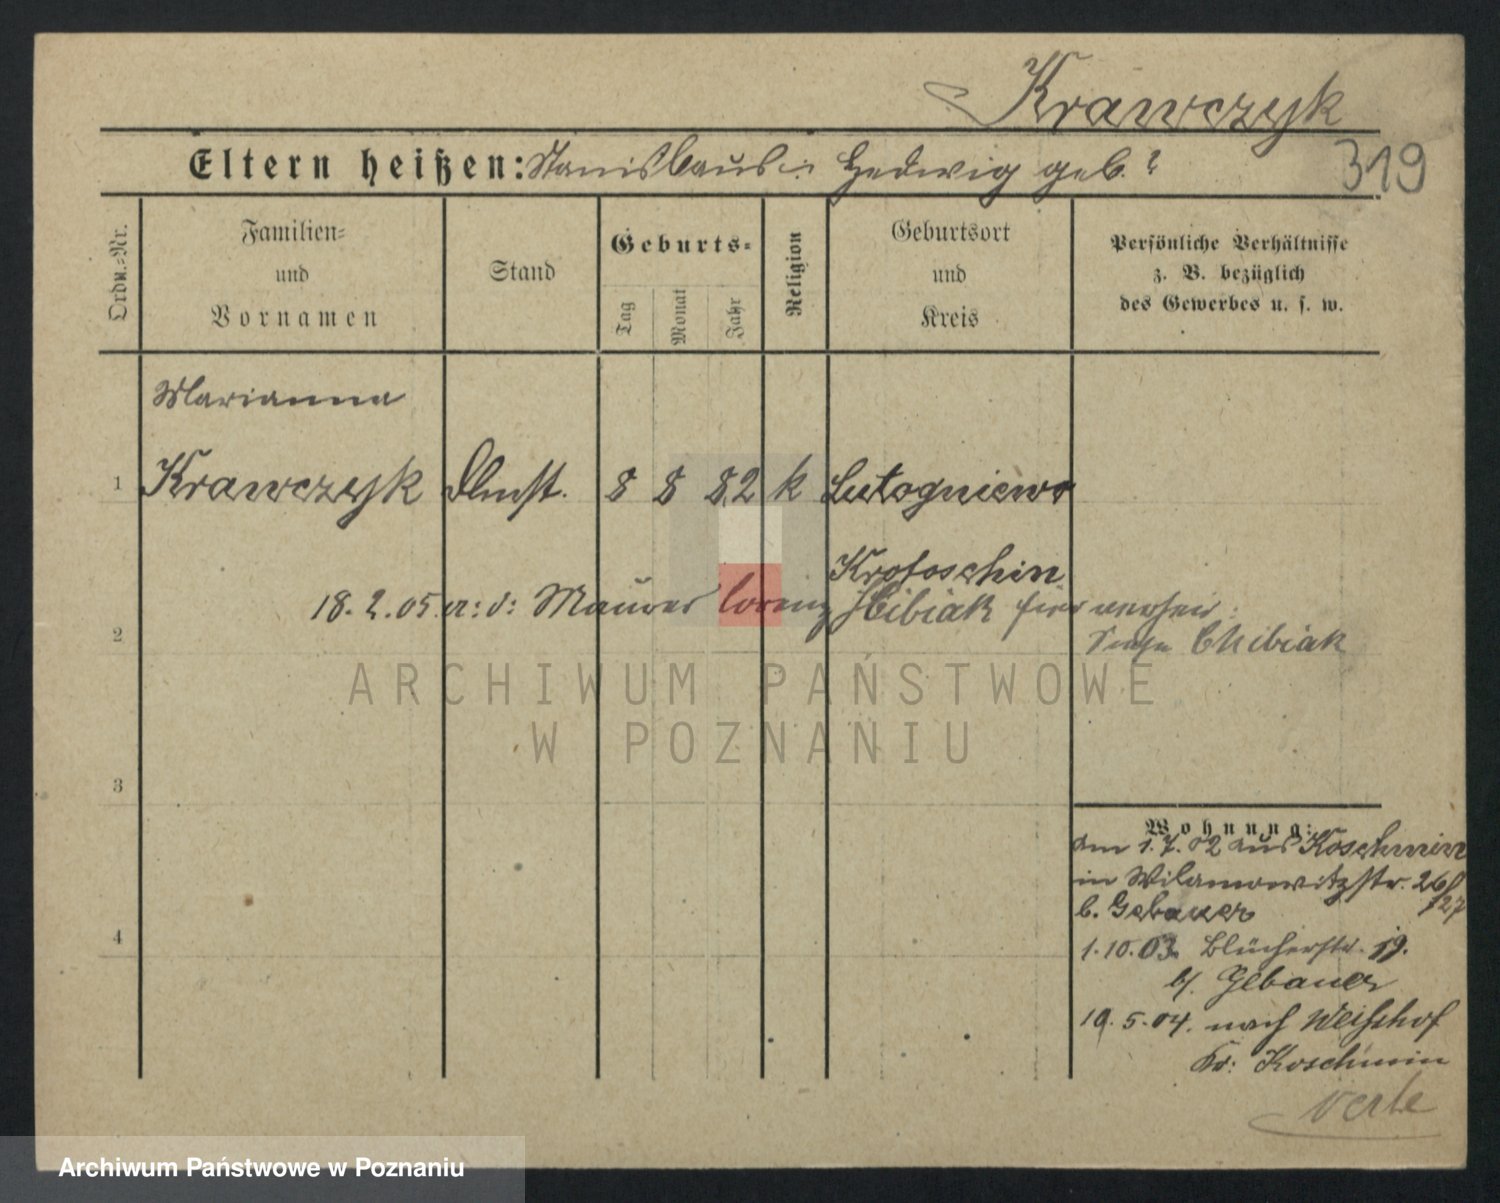 Krawczyk
319
Eltern heißen: Stanislaus u: Hedwig geb. ?
Ordn.-Nr.
Familien-
und
Vornamen
Stand
Geburts-
Tag
Monat
Jahr
Religion
Geburtsort
und
Kreis
Persönliche Verhältnisse
z. B. bezüglich
des Gewerbes u. s. w.
Marianna
1 Krawczyk Dmst. 8 8 82 k Lutogniewo
Krotoschin
18. 2. 05. a: d: Maurer Lorenz Skibiak hier verheir:
2 Siehe Skibiak
3
4
Wohnung:
am 1. 7. 02 aus Koschmin
in Wilamowitzstr. 26/27
b. Gebauer
1. 10. 03. Blücherstr. 19.
b/ Gebauer
19. 5. 04. nach Weißhof
Kr: Koschmin
ARCHIWUM PAŃSTWOWE
W POZNANIU
Archiwum Państwowe w Poznaniu